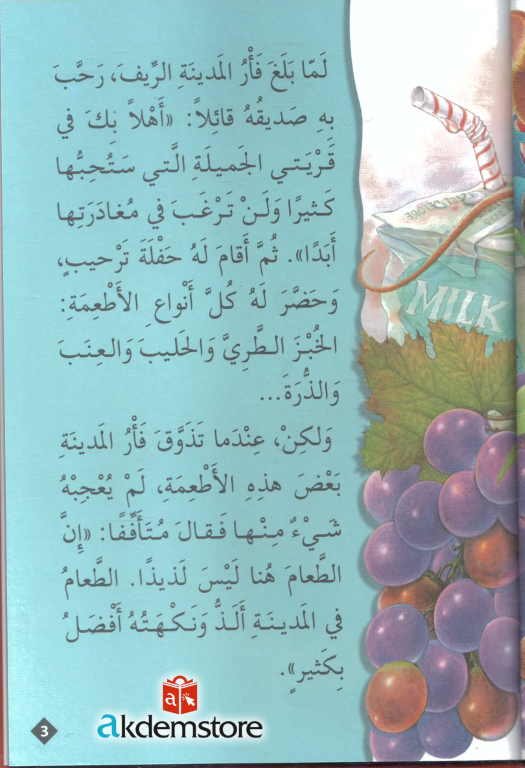 لَمّا بَلَغَ فَأْرُ المَدينَةِ الرِّيفَ، رَحَّبَ
بِهِ صَديقُهُ قائِلاً: «أَهْلاً بِكَ في
قَرْيَتي الجَميلَةِ الَّتي سَتُحِبُّها
كَثيرًا وَلَنْ تَرْغَبَ في مُغادَرَتِها
أَبَدًا». ثُمَّ أَقامَ لَهُ حَفْلَةَ تَرْحيبٍ،
وَحَضَّرَ لَهُ كُلَّ أَنْواعِ الأَطْعِمَةِ:
الخُبْزَ الطَّرِيَّ وَالحَليبَ وَالعِنَبَ
وَالذُّرَةَ...
وَلكِنْ، عِنْدَما تَذَوَّقَ فَأْرُ المَدينَةِ
بَعْضَ هذِهِ الأَطْعِمَةِ، لَمْ يُعْجِبْهُ
شَيْءٌ مِنْها فَقالَ مُتَأَفِّفًا: «إِنَّ
الطَّعامَ هُنا لَيْسَ لَذيذًا. الطَّعامُ
في المَدينَةِ أَلَذُّ وَنَكْهَتُهُ أَفْضَلُ
بِكَثيرٍ».
MILK
a
akdemstore
3